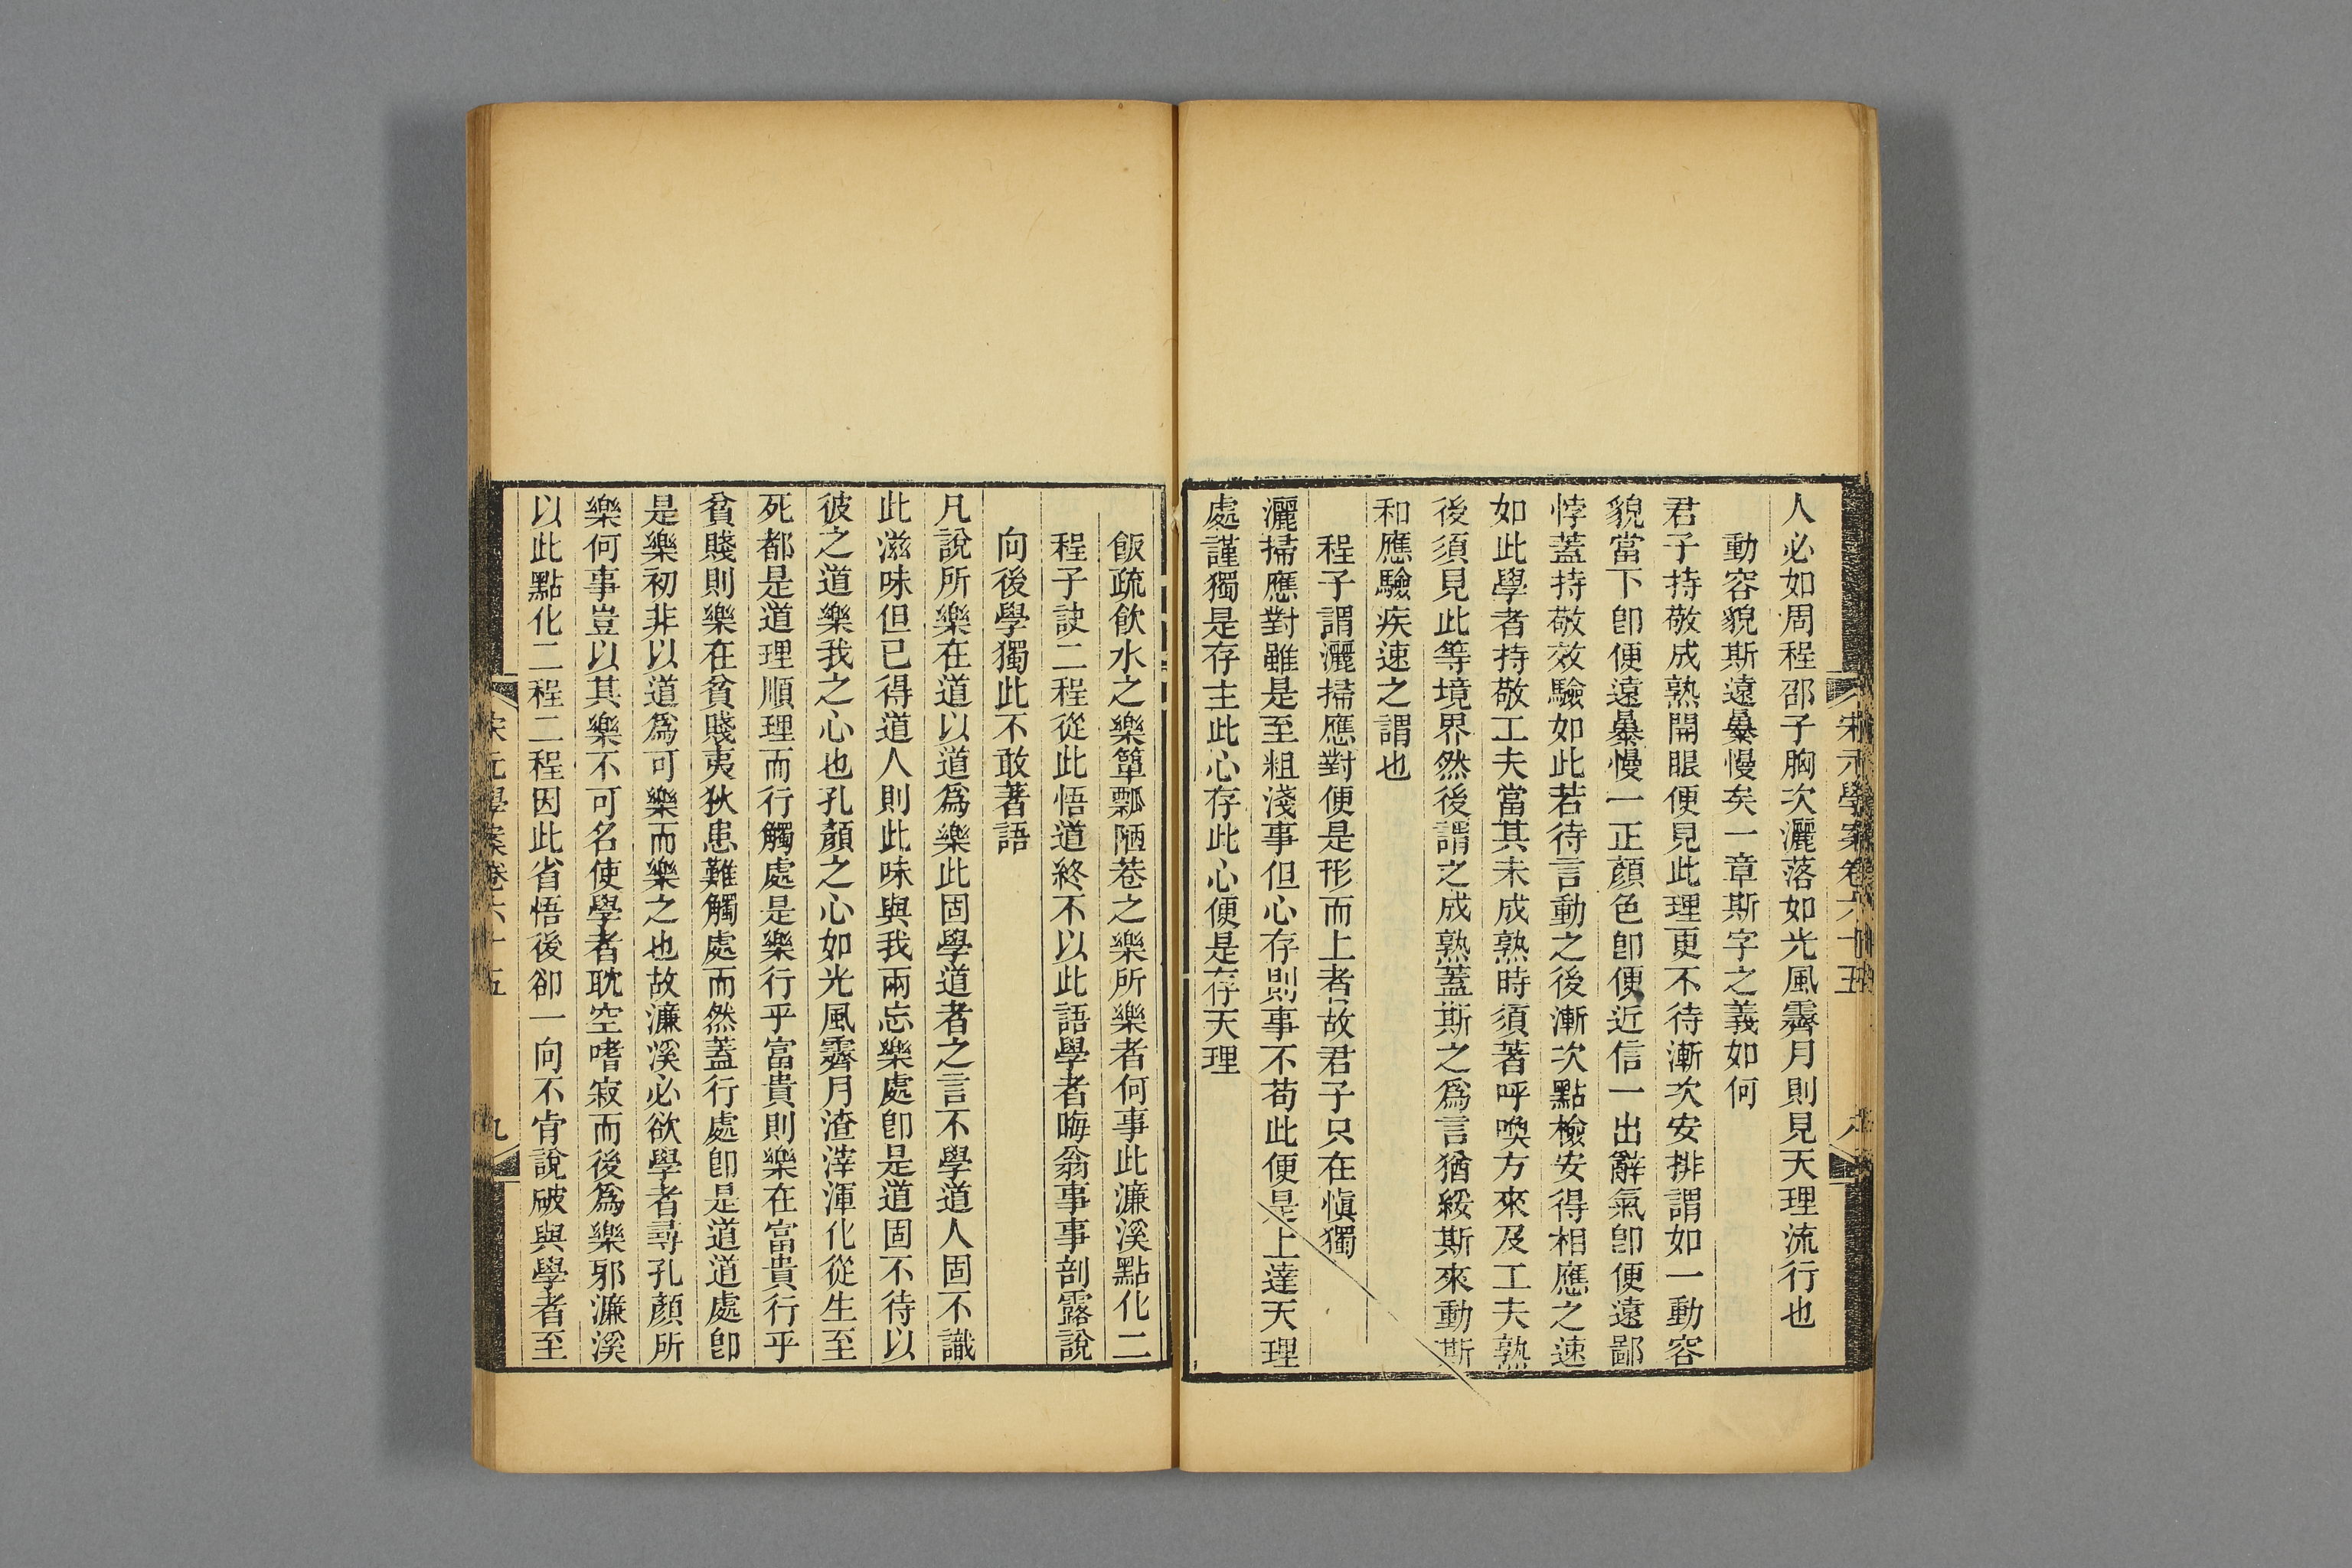 宋元學案卷六十五 八
人必如周程邵子胸次灑落如光風霽月則見天理流行也
動容貌斯遠暴慢矣一章斯字之義如何
君子持敬成熟開眼便見此理更不待漸次安排謂如一動容
貌當下卽便遠暴慢一正顏色卽便近信一出辭氣卽便遠鄙
悖蓋持敬效驗如此若待言動之後漸次點檢安得相應之速
如此學者持敬工夫當其未成熟時須著呼喚方來及工夫熟
後須見此等境界然後謂之成熟蓋斯之爲言猶綏斯來動斯
和應驗疾速之謂也
程子謂灑掃應對便是形而上者故君子只在愼獨
灑掃應對雖是至粗淺事但心存則事不苟此便是上達天理
處謹獨是存主此心存此心便是存天理
飯疏飲水之樂簞瓢陋巷之樂所樂者何事此濂溪點化二
程子訣二程從此悟道終不以此語學者晦翁事事剖露說
向後學獨此不敢著語
凡說所樂在道以道爲樂此固學道者之言不學道人固不識
此滋味但已得道人則此味與我兩忘樂處卽是道固不待以
彼之道樂我之心也孔顏之心如光風霽月渣滓渾化從生至
死都是道理順理而行觸處是樂行乎富貴則樂在富貴行乎
貧賤則樂在貧賤夷狄患難觸處而然蓋行處卽是道道處卽
是樂初非以道爲可樂而樂之也故濂溪必欲學者尋孔顏所
樂何事豈以其樂不可名使學者耽空嗜寂而後爲樂邪濂溪
以此點化二程二程因此省悟後卻一向不肯說破與學者至
宋元學案卷六十五 九